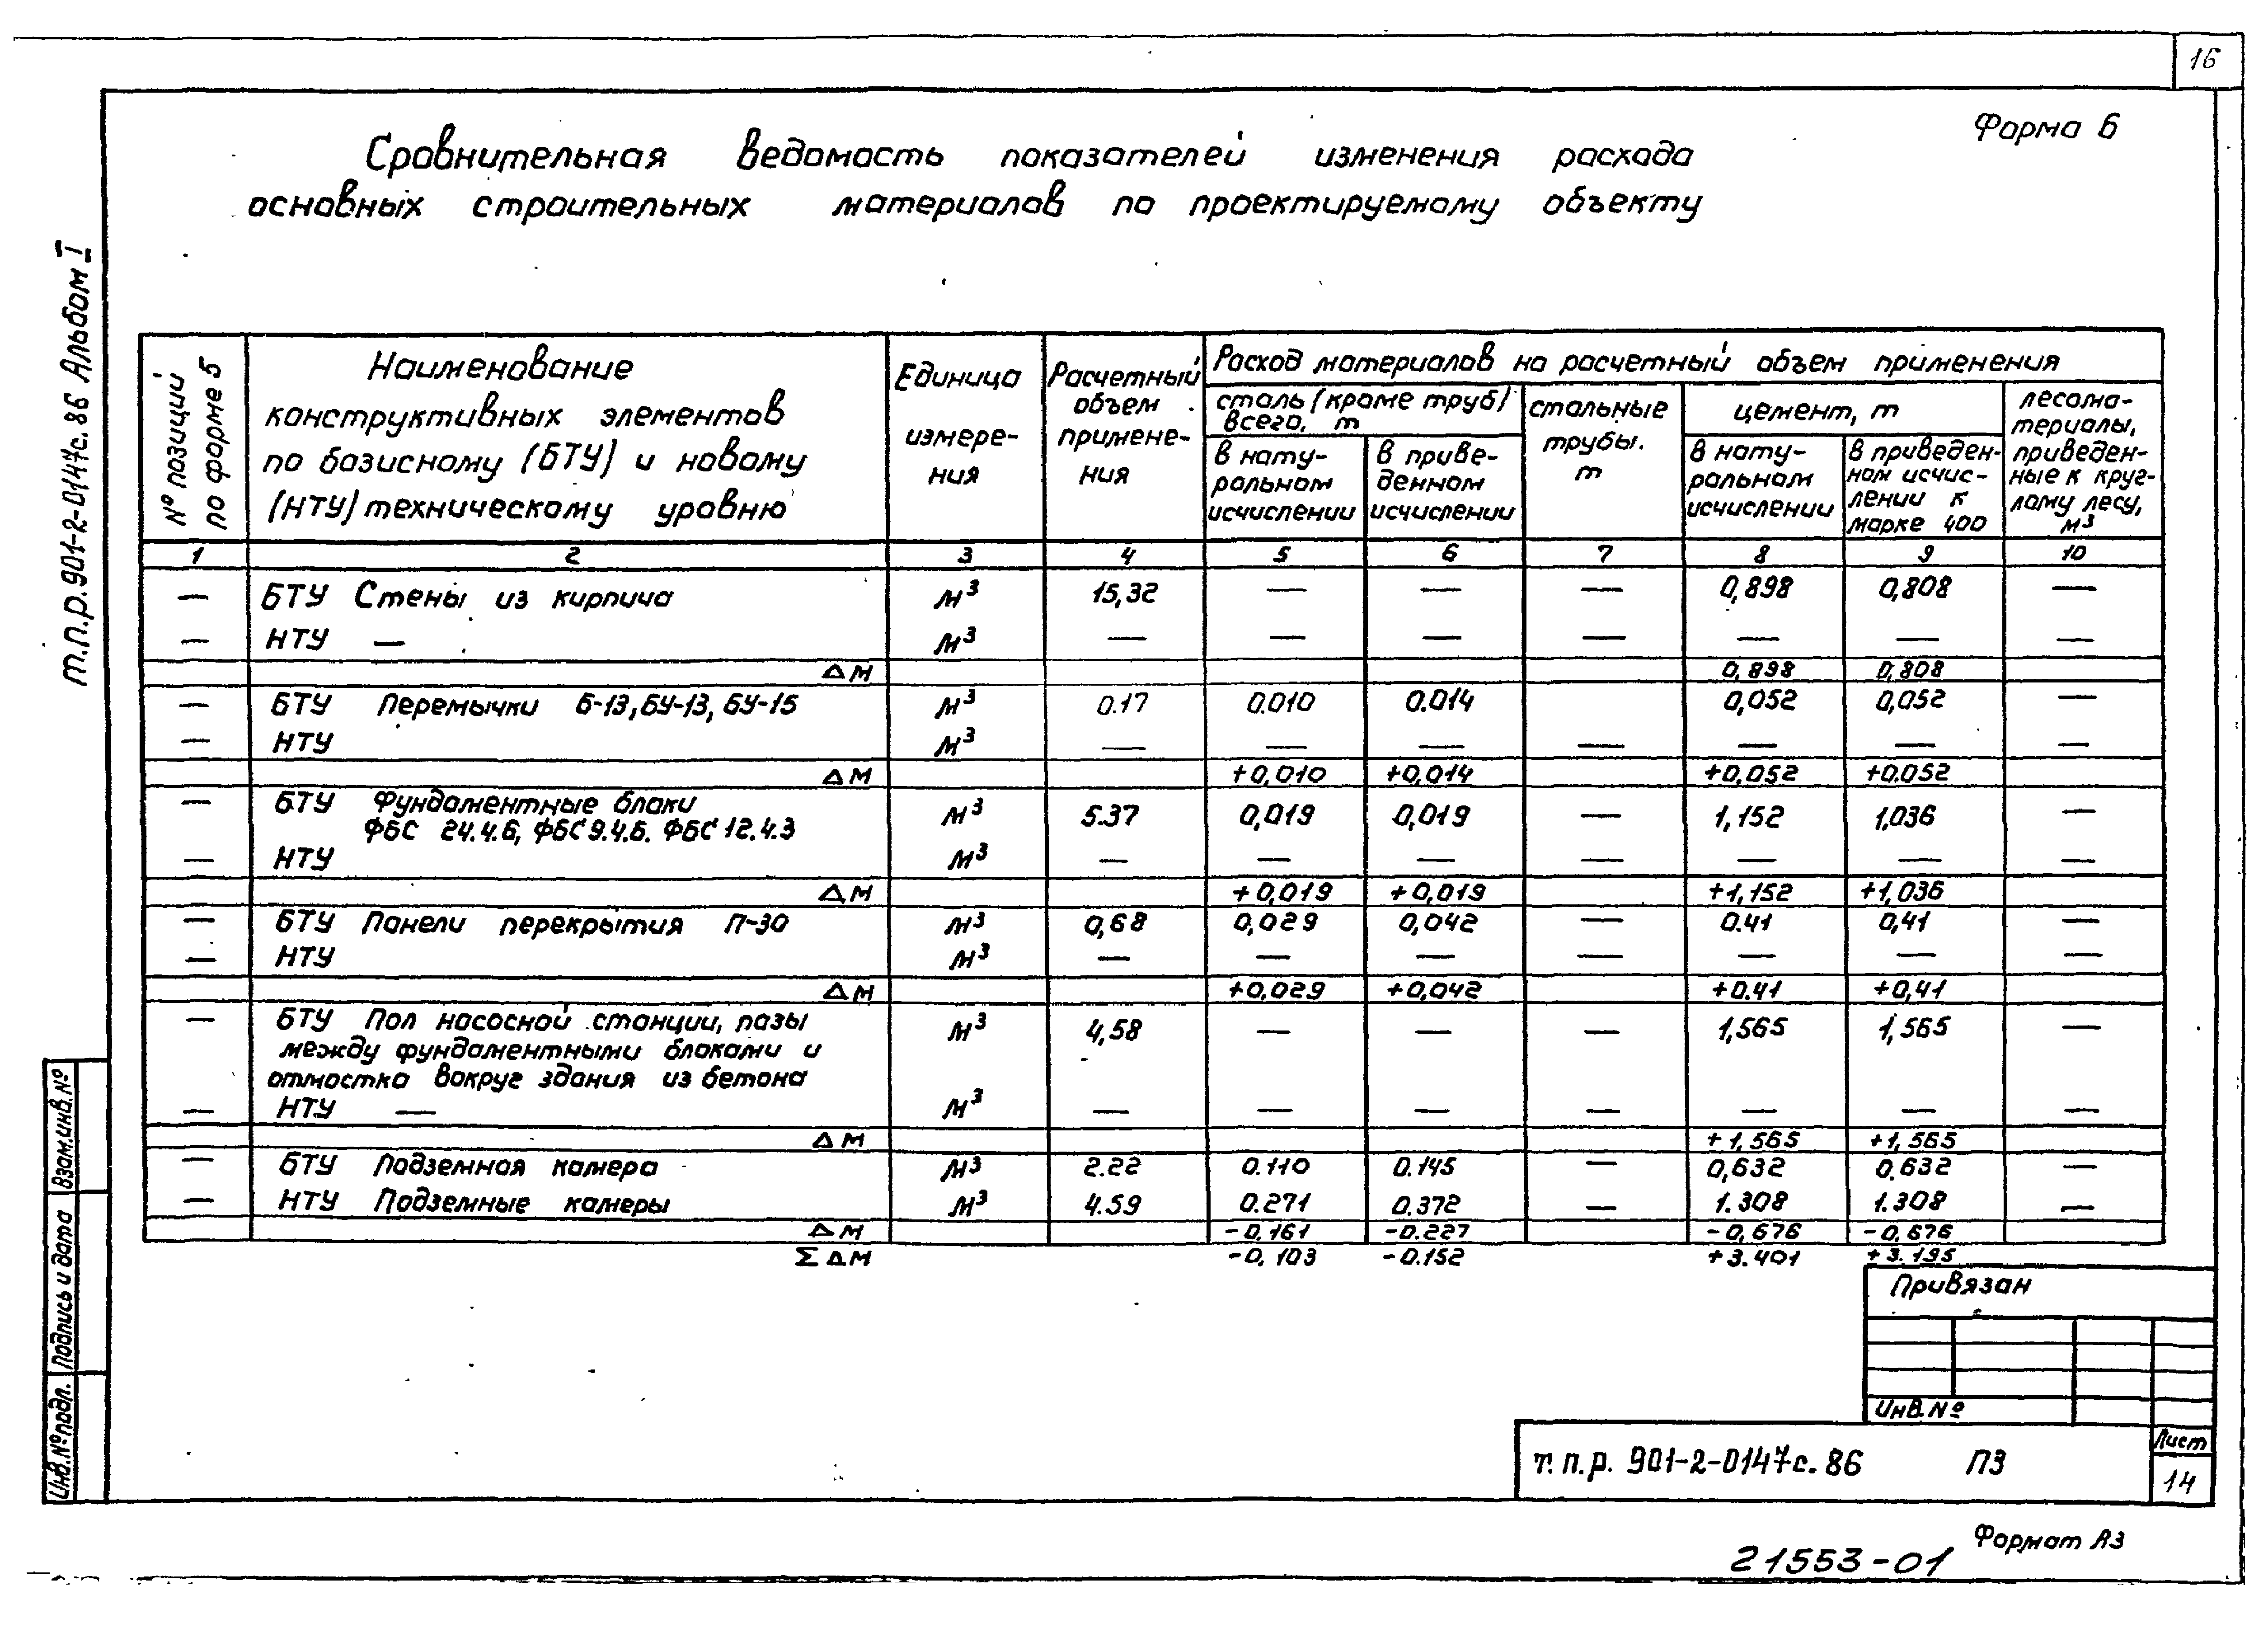 16
Форма 6
Сравнительная ведомость показателей изменения расхода
основных строительных материалов по проектируемому объекту
т.п.р. 901-2-0147с.86 Альбом I
№ позиций по форме 5
Наименование
конструктивных элементов
по базисному (БТУ) и новому
(НТУ) техническому уровню
Единица
измере-
ния
Расчетный
объем
примене-
ния
Расход материалов на расчетный объем применения
сталь (кроме труб)
всего, т
в нату-
ральном
исчислении
в приве-
денном
исчислении
стальные
трубы.
т
цемент, т
в нату-
ральном
исчислении
в приведен-
ном исчис-
лении к
марке 400
лесома-
териалы,
приведен-
ные к круг-
лому лесу,
м³
1 2 3 4 5 6 7 8 9 10
— БТУ Стены из кирпича м³ 15,32 — — — 0,898 0,808 —
— НТУ — м³ — — — — — — —
Δ М 0,898 0,808
— БТУ Перемычки Б-13, БУ-13, БУ-15 м³ 0.17 0.010 0.014 0,052 0,052 —
— НТУ м³ — — — — — — —
Δ М +0,010 +0,014 +0,052 +0.052
— БТУ Фундаментные блоки
ФБС 24.4.6, ФБС 9.4.6. ФБС 12.4.3 м³ 5.37 0,019 0,019 — 1,152 1,036 —
— НТУ м³ — — — — — — —
Δ М +0,019 +0,019 +1,152 +1,036
— БТУ Панели перекрытия П-30 м³ 0,68 0,029 0,042 — 0.41 0,41 —
— НТУ м³ — — — — — — —
Δ М +0,029 +0,042 +0.41 +0,41
— БТУ Пол насосной станции, пазы м³ 4,58 — — — 1,565 1,565 —
между фундаментными блоками и
отмостка вокруг здания из бетона
— НТУ — м³ — — — — — — —
Δ М +1.565 +1,565
— БТУ Подземная камера м³ 2.22 0.110 0.145 — 0,632 0.632 —
— НТУ Подземные камеры м³ 4.59 0.271 0.372 — 1.308 1.308 —
Δ М -0.161 -0.227 -0,676 -0,676
Σ Δ М -0,103 -0.152 +3.401 +3.195
Привязан
Инв.№
т.п.р. 901-2-0147с.86 ПЗ
Лист
14
Взам.инв.№
Подпись и дата
Инв.№ подл.
Формат А3
21553-01